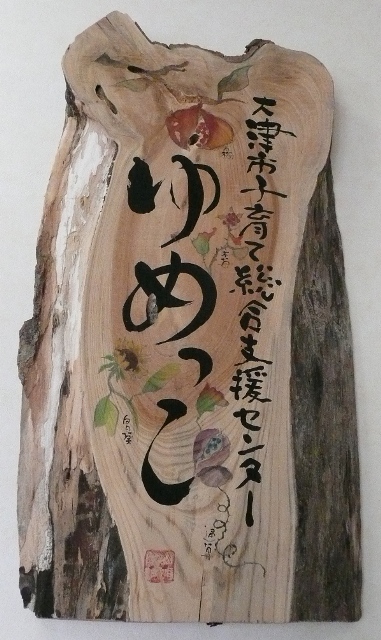 大津市子育て総合支援センター
ゆめっこ